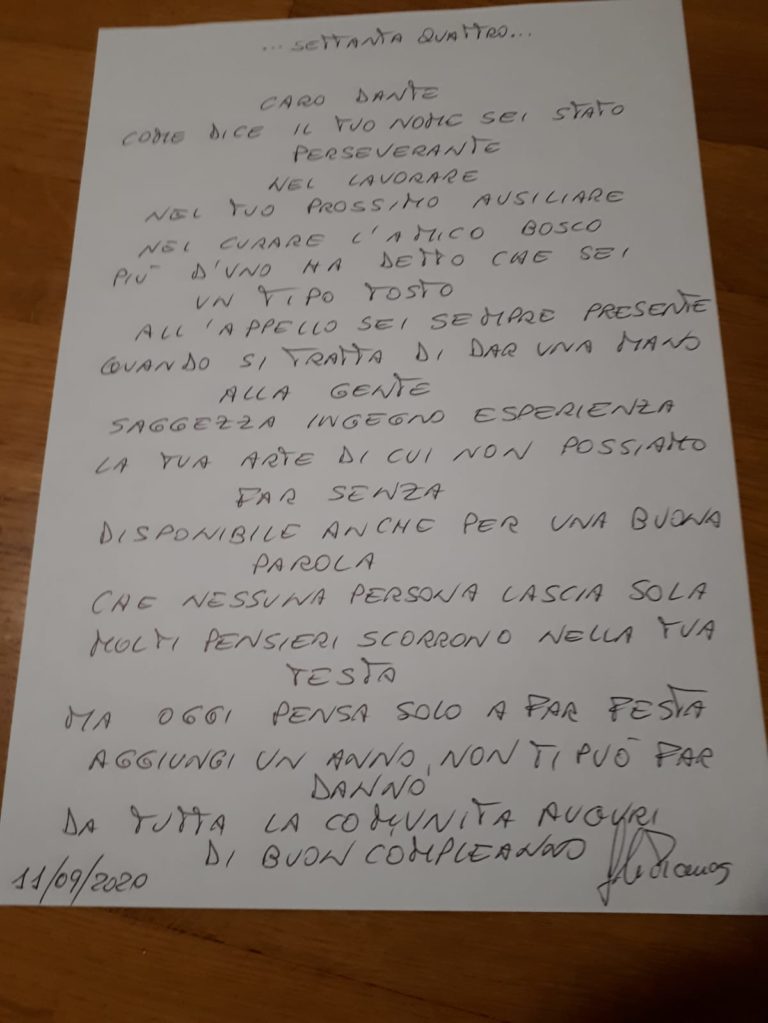 ... SETTANTA QUATTRO...
CARO DANTE
COME DICE IL TUO NOME SEI STATO
PERSEVERANTE
NEL LAVORARE
NEL TUO PROSSIMO AUSILIARE
NEL CURARE L'AMICO BOSCO
PIU' D'UNO HA DETTO CHE SEI
UN TIPO TOSTO
ALL'APPELLO SEI SEMPRE PRESENTE
QUANDO SI TRATTA DI DAR UNA MANO
ALLA GENTE
SAGGEZZA INGEGNO ESPERIENZA
LA TUA ARTE DI CUI NON POSSIAMO
FAR SENZA
DISPONIBILE ANCHE PER UNA BUONA
PAROLA
CHE NESSUNA PERSONA LASCIA SOLA
MOLTI PENSIERI SCORRONO NELLA TUA
TESTA
MA OGGI PENSA SOLO A FAR FESTA
AGGIUNGI UN ANNO, NON TI PUÒ FAR
DANNO
DA TUTTA LA COMUNITA AUGURI
DI BUON COMPLEANNO
11/09/2020